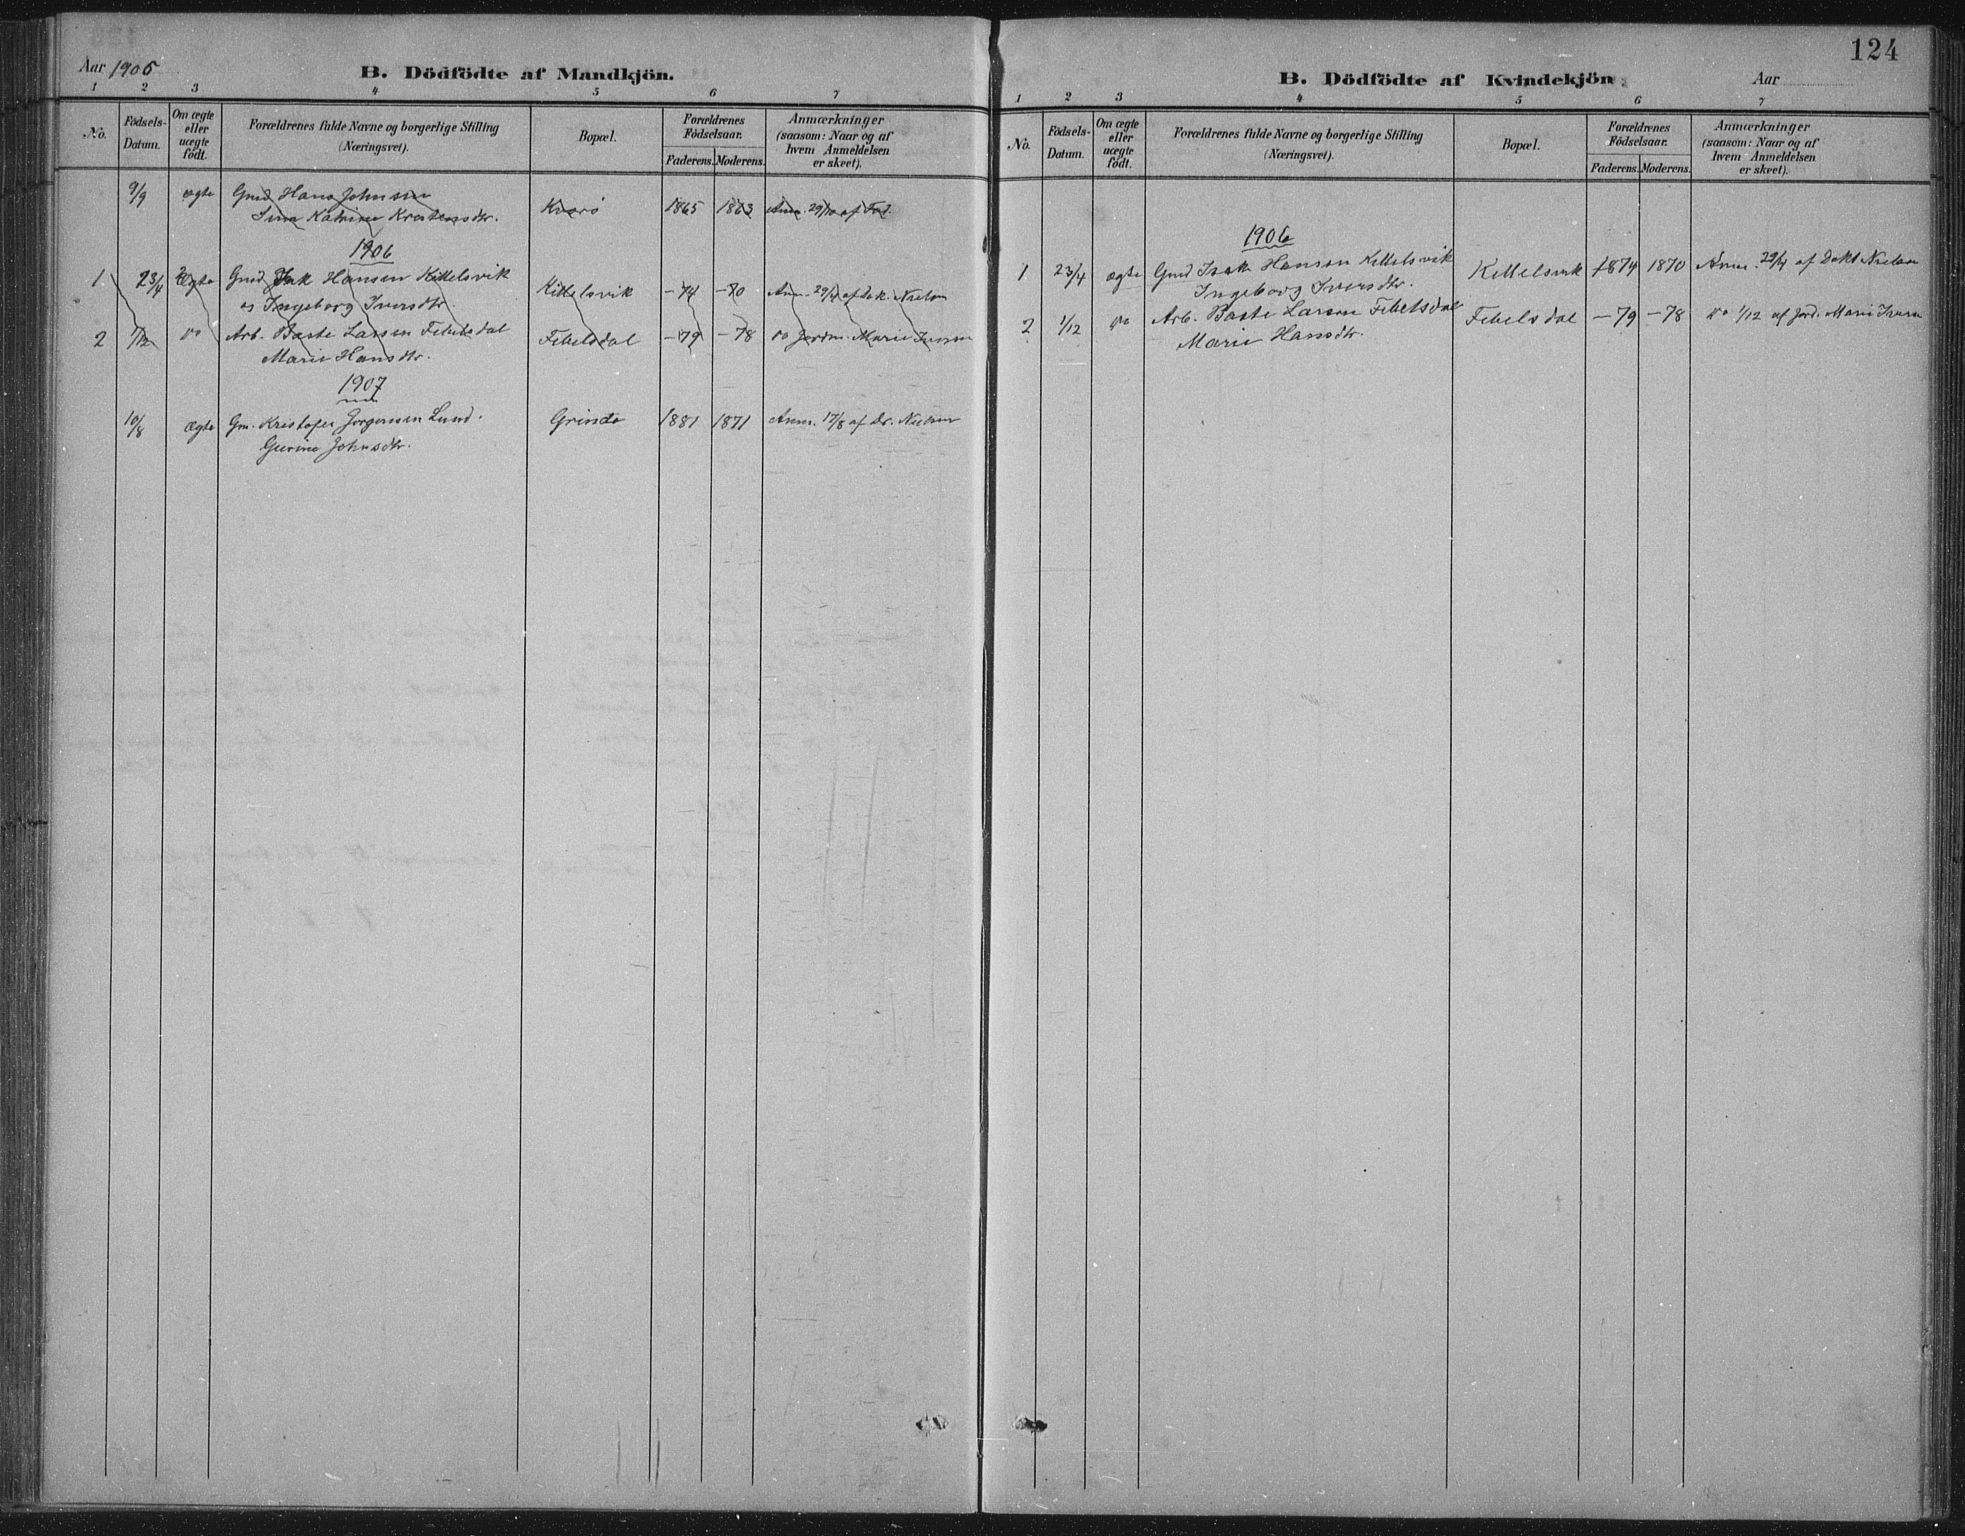 Aar 1905
B. Dödfödte af Mandkjön.
1 2 3 4 5 6 7
No. Födsels-Datum. Om ægte eller uægte födt. Forældrenes fulde Navne og borgerlige Stilling (Næringsvei). Bopæl. Forældrenes Födselsaar. Faderens. Moderens. Anmærkninger (saasom: Naar og af hvem Anmeldelsen er skeet).
9/9 ægte Gmd Hans Johnsen
Katrine Kvarø 1865 1863 Anm. 29/10 af Fad.
1906
1 23/4 Ægte Gmd Isak Hansen Kittelsvik
Ingeborg Iversdtr. Kittelsvik -74 -70 Anm. 29/4 af Dok. Nielsen
2 1/12 do Arb. Baste Larsen Febelsdal
Marie Hansdtr. Febelsdal -79 -78 do Jordm. Marie Iversen
1907
10/8 Ægte Gm. Kristofer Jørgensen Lund.
Gurine Johnsdtr. Grindø 1881 1871 Anm. 17/8 af Dr. Nielsen
124
B. Dödfödte af Kvindekjön.
Aar
1 2 3 4 5 6 7
No. Födsels-Datum. Om ægte eller uægte födt. Forældrenes fulde Navne og borgerlige Stilling (Næringsvei). Bopæl. Forældrenes Födselsaar. Faderens. Moderens. Anmærkninger (saasom: Naar og af hvem Anmeldelsen er skeet).
1906
1 23/4 ægte Gmd Isak Hansen Kittelsvik
Ingeborg Iversdtr. Kittelsvik 1874 1870 Anm. 29/4 af Dokt Nielsen
2 1/12 do Arb. Baste Larsen Febelsdal
Marie Hansdtr. Febelsdal -79 -78 do 1/12 af Jord. Marie Iversen